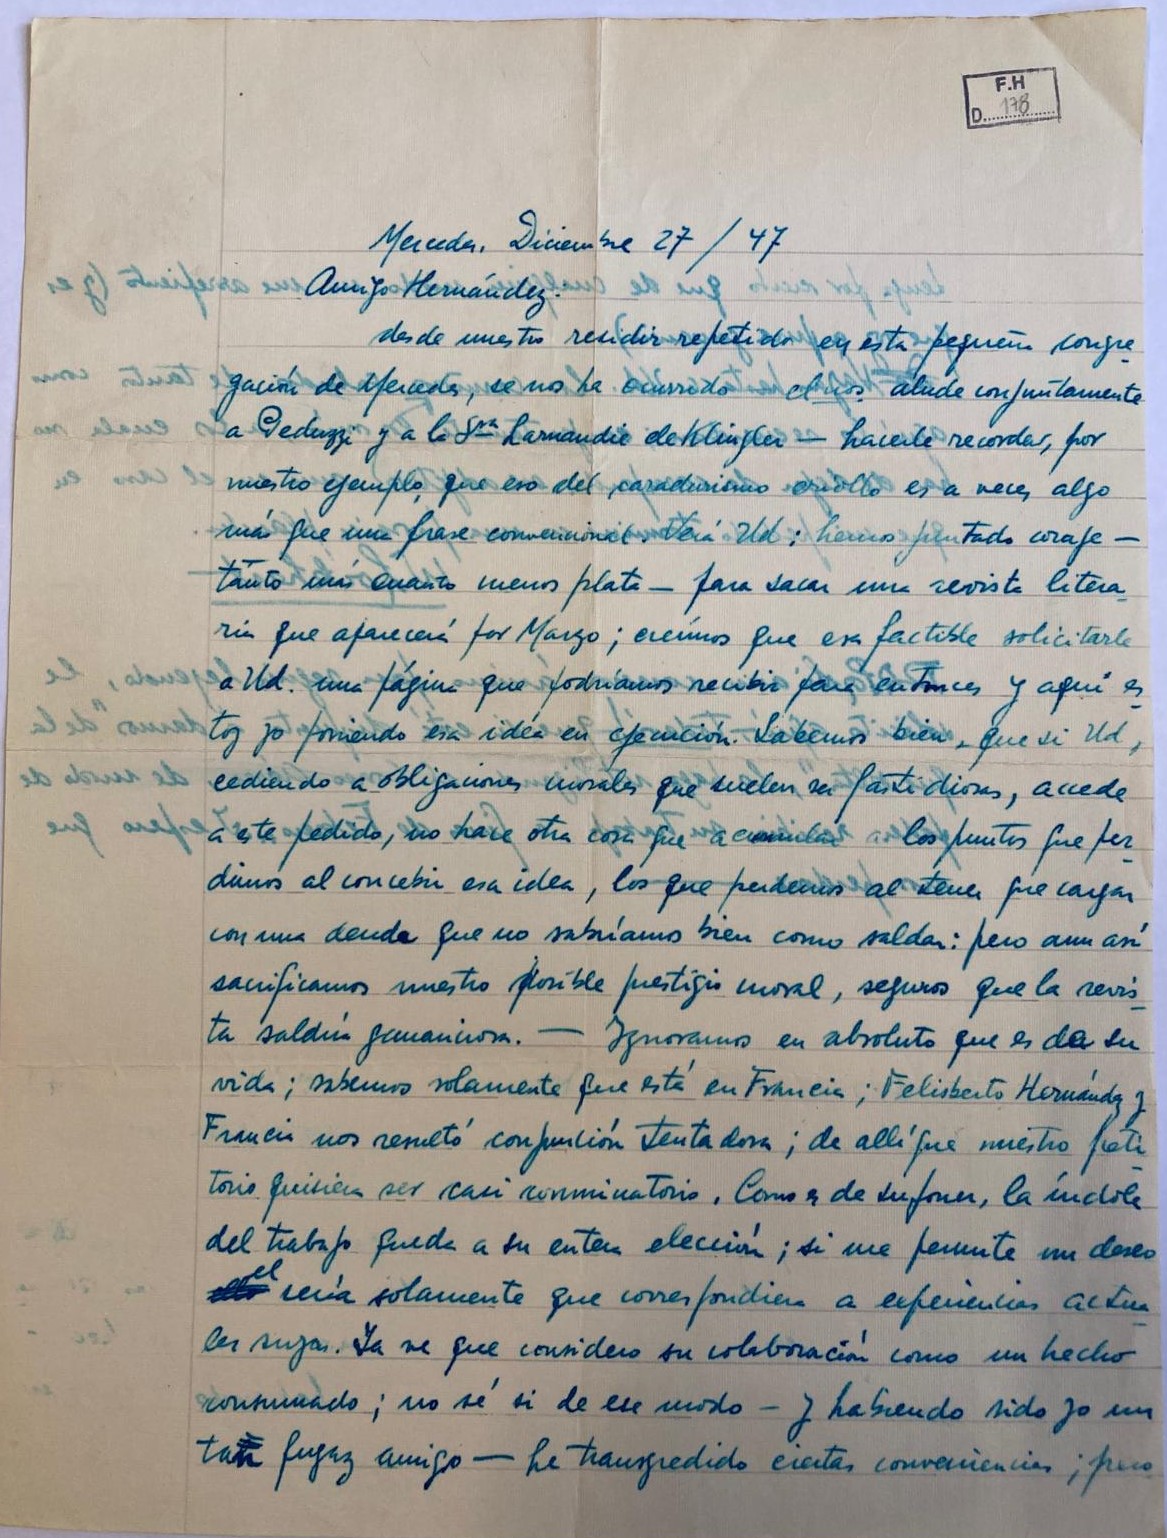 F.H
D. 178
Mercedes. Diciembre 27 / 47
Amigo Hernández:
desde nuestro residir repetido en esta pequeña congre-
gación de Mercedes, se nos ha ocurrido – el nos alude conjuntamente
a Peduzzi y a la Sra Larnaudie de Klingler – hacerle recordar, por
nuestro ejemplo, que eso del caradurismo criollo es a veces algo
más que una frase convencional. Verá Ud; hemos juntado coraje –
tanto más cuanto menos plata – para sacar una revista litera-
ria que aparecerá por Marzo; creímos que era factible solicitarle
a Ud. una página que podríamos recibir para entonces y aquí es-
toy yo poniendo esa idéa en ejecución. Sabemos bien, que si Ud,
cediendo a obligaciones morales que suelen ser fastidiosas, accede
a este pedido, no hace otra cosa que acumular a los puntos que per-
dimos al concebir esa idea, los que perdemos al tener que cargar
con una deuda que no sabríamos bien como saldar: pero aun así
sacrificamos nuestro posible prestigio moral, seguros que la revis-
ta saldría gananciosa. — Ignoramos en absoluto que es de su
vida; sabemos solamente que está en Francia; Felisberto Hernández y
Francia nos resultó conjunción tentadora; de allí que nuestro peti-
torio quisiera ser casi conminatorio. Como es de suponer, la índole
del trabajo queda a su entera elección; si me permite un deseo
el sería solamente que correspondiera a experiencias actua-
les suyas. Ya ve que considero su colaboración como un hecho
consumado; no sé si de ese modo – y habiendo sido yo un
tan fugaz amigo — he transgredido ciertas conveniencias; pero